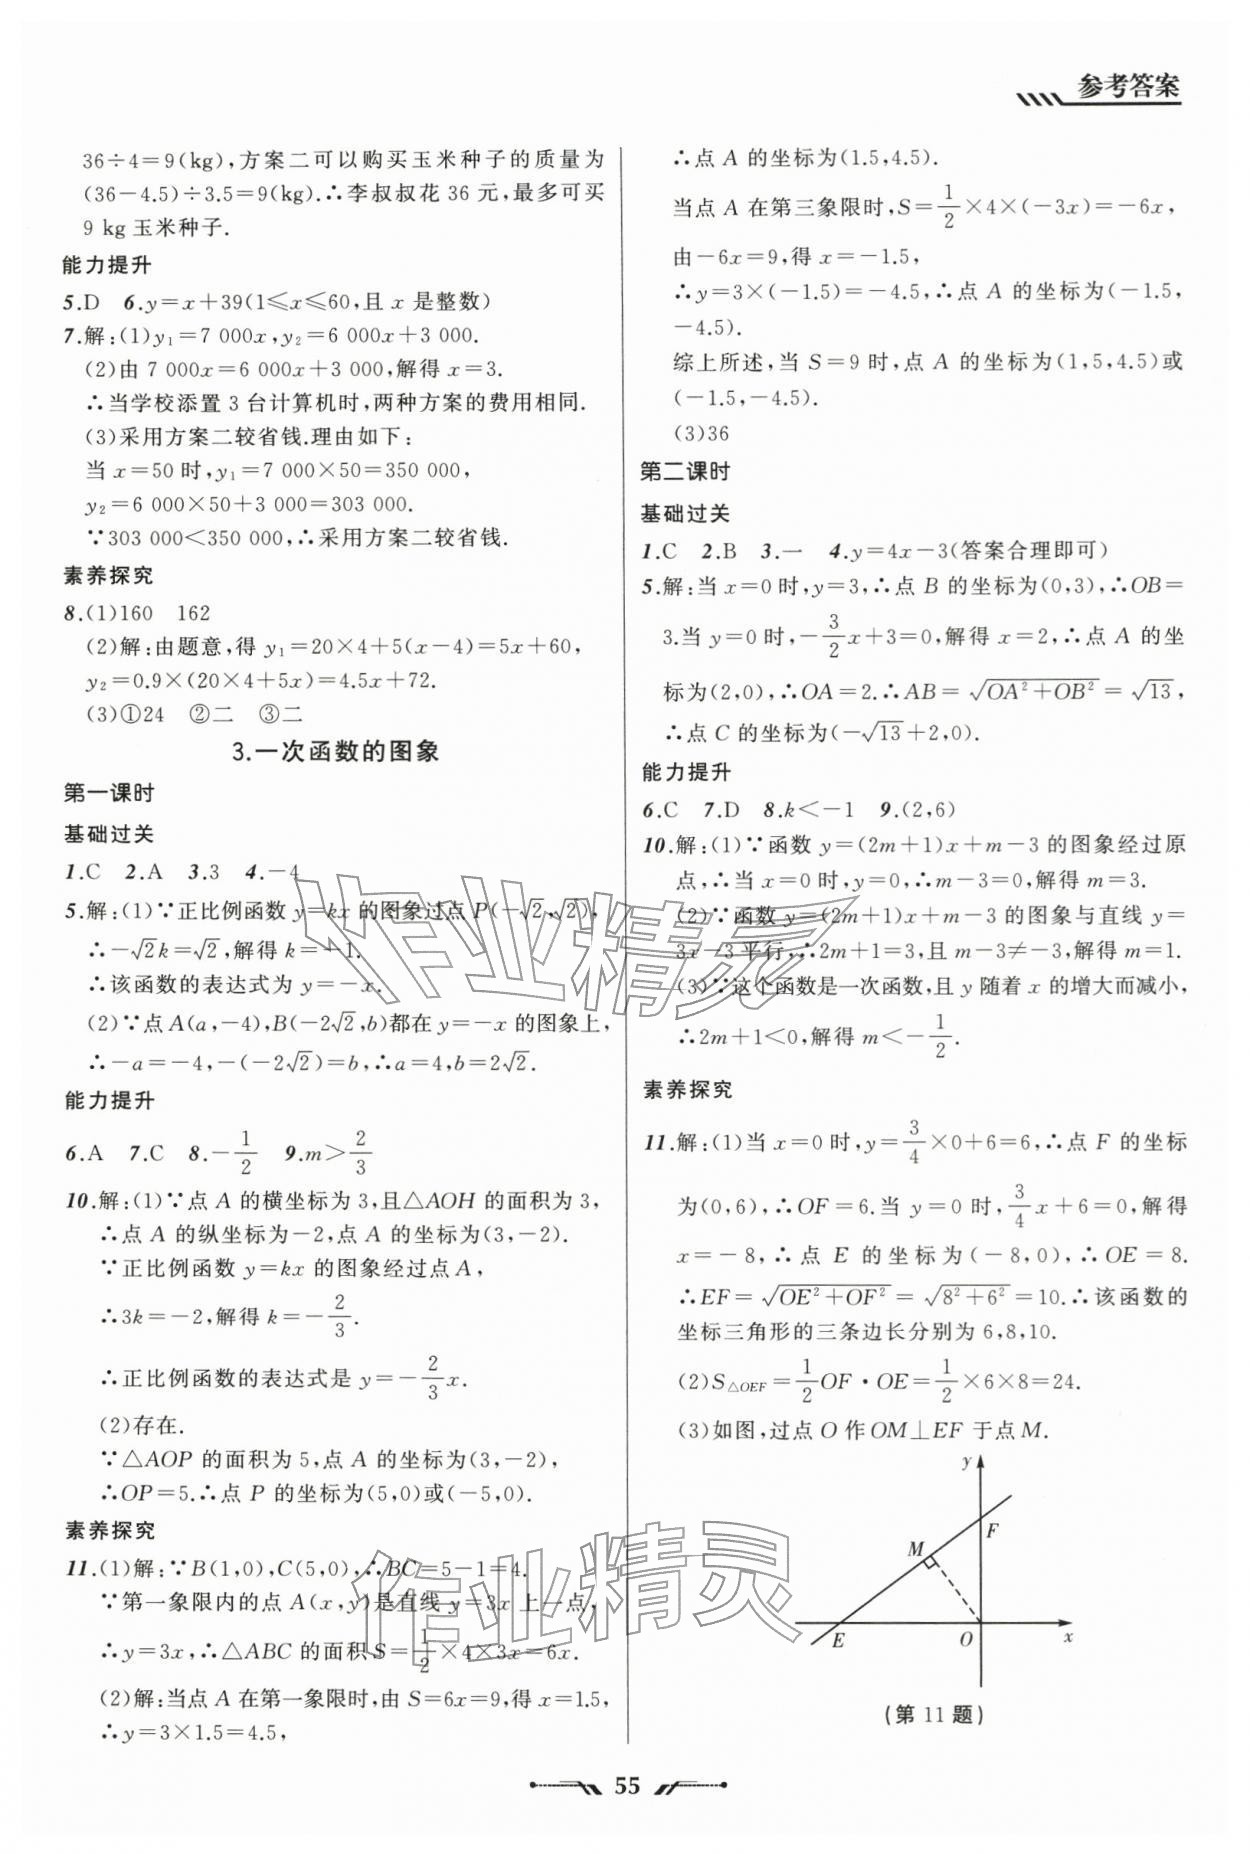 参考答案
36÷4=9(kg),方案二可以购买玉米种子的质量为
(36-4.5)÷3.5=9(kg).∴李叔叔花 36 元,最多可买
9 kg 玉米种子.
能力提升
5.D 6.y=x+39(1≤x≤60,且 x 是整数)
7.解:(1)y₁=7 000x,y₂=6 000x+3 000.
(2)由 7 000x=6 000x+3 000,解得 x=3.
∴当学校添置 3 台计算机时,两种方案的费用相同.
(3)采用方案二较省钱.理由如下:
当 x=50 时,y₁=7 000×50=350 000,
y₂=6 000×50+3 000=303 000.
∵303 000<350 000,∴采用方案二较省钱.
素养探究
8.(1)160 162
(2)解:由题意,得 y₁=20×4+5(x-4)=5x+60,
y₂=0.9×(20×4+5x)=4.5x+72.
(3)①24 ②二 ③二
3.一次函数的图象
第一课时
基础过关
1.C 2.A 3.3 4.-4
5.解:(1)∵正比例函数 y=kx 的图象过点 P(-√2,√2),
∴-√2k=√2,解得 k=-1.
∴该函数的表达式为 y=-x.
(2)∵点 A(a,-4),B(-2√2,b)都在 y=-x 的图象上,
∴-a=-4,-(-2√2)=b,∴a=4,b=2√2.
能力提升
6.A 7.C 8.-1/2 9.m>2/3
10.解:(1)∵点 A 的横坐标为 3,且△AOH 的面积为 3,
∴点 A 的纵坐标为-2,点 A 的坐标为(3,-2).
∵正比例函数 y=kx 的图象经过点 A,
∴3k=-2,解得 k=-2/3.
∴正比例函数的表达式是 y=-2/3x.
(2)存在.
∵△AOP 的面积为 5,点 A 的坐标为(3,-2),
∴OP=5.∴点 P 的坐标为(5,0)或(-5,0).
素养探究
11.(1)解:∵B(1,0),C(5,0),∴BC=5-1=4.
∵第一象限内的点 A(x,y)是直线 y=3x 上一点,
∴y=3x,∴△ABC 的面积 S=1/2×4×3x=6x.
(2)解:当点 A 在第一象限时,由 S=6x=9,得 x=1.5,
∴y=3×1.5=4.5,
∴点 A 的坐标为(1.5,4.5).
当点 A 在第三象限时,S=1/2×4×(-3x)=-6x,
由-6x=9,得 x=-1.5,
∴y=3×(-1.5)=-4.5,∴点 A 的坐标为(-1.5,
-4.5).
综上所述,当 S=9 时,点 A 的坐标为(1,5,4.5)或
(-1.5,-4.5).
(3)36
第二课时
基础过关
1.C 2.B 3.一 4.y=4x-3(答案合理即可)
5.解:当 x=0 时,y=3,∴点 B 的坐标为(0,3),∴OB=
3.当 y=0 时,-3/2x+3=0,解得 x=2,∴点 A 的坐
标为(2,0),∴OA=2.∴AB=√(OA²+OB²)=√13,
∴点 C 的坐标为(-√13+2,0).
能力提升
6.C 7.D 8.k<-1 9.(2,6)
10.解:(1)∵函数 y=(2m+1)x+m-3 的图象经过原
点,∴当 x=0 时,y=0,∴m-3=0,解得 m=3.
(2)∵函数 y=(2m+1)x+m-3 的图象与直线 y=
3x-3 平行,∴2m+1=3,且 m-3≠-3,解得 m=1.
(3)∵这个函数是一次函数,且 y 随着 x 的增大而减小,
∴2m+1<0,解得 m<-1/2.
素养探究
11.解:(1)当 x=0 时,y=3/4×0+6=6,∴点 F 的坐标
为(0,6),∴OF=6.当 y=0 时,3/4x+6=0,解得
x=-8,∴点 E 的坐标为(-8,0),∴OE=8.
∴EF=√(OE²+OF²)=√(8²+6²)=10.∴该函数的
坐标三角形的三条边长分别为 6,8,10.
(2)S△OEF=1/2OF·OE=1/2×6×8=24.
(3)如图,过点 O 作 OM⊥EF 于点 M.
y
F
M
E
O
x
(第 11 题)
55
作业精灵
作业精灵